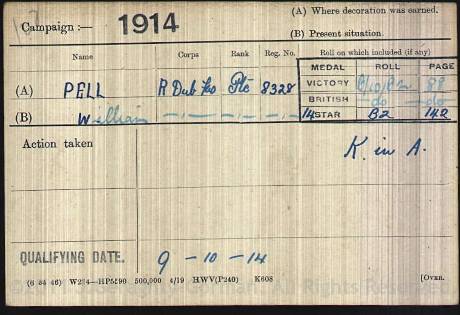 (A) Where decoration was earned.
Campaign :— 1914
(B) Present situation.
Name Corps Rank Reg. No. Roll on which included (if any)
MEDAL ROLL PAGE
(A) PELL R Dub Fus Pte 8328 VICTORY B2 88
BRITISH —do— —do
(B) William —"— —"— —"— 14 STAR B2 142
Action taken
K. in A.
QUALIFYING DATE. 9 – 10 – 14
(6 34 46) W234—HP5590 500,000 4/19 HWV(P240) K608
[OVER.